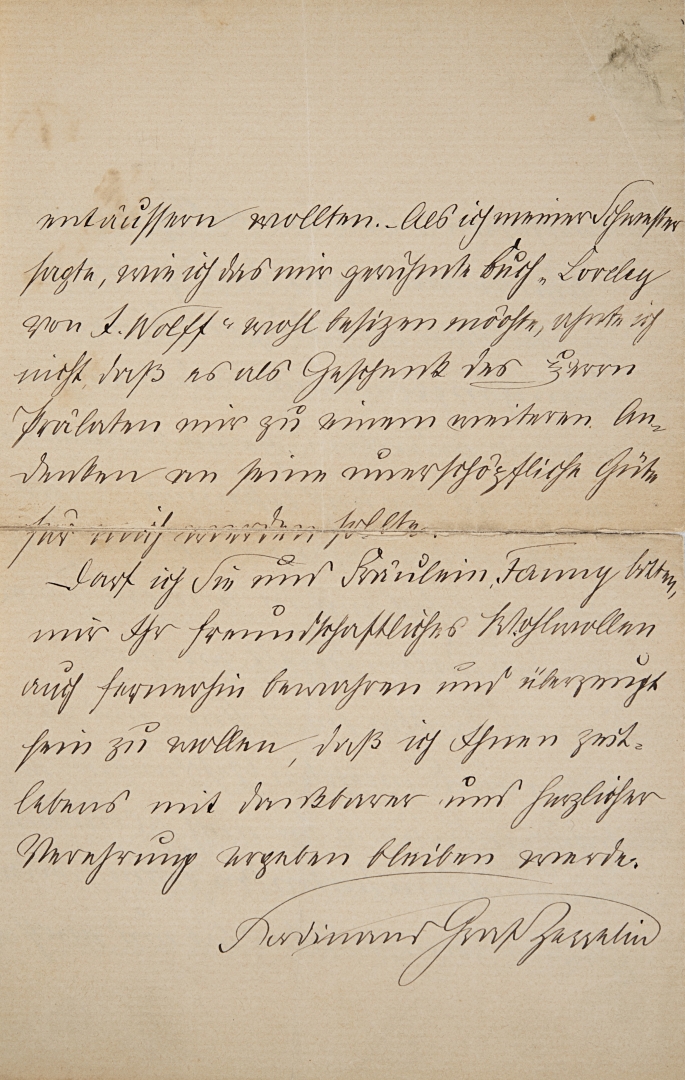 entäussern wollten. – Als ich meiner Schwester
sagte, wie ich das mir gerühmte Buch „Loreley
von J. Wolff“ wohl besizen möchte, ahnte ich
nicht, daß es als Geschenk des Herrn
Prälaten mir zu einem weiteren An-
denken an seine unerschöpfliche Güte
für mich werden sollte.
Darf ich Sie und Fräulein Fanny bitten,
mir Ihr freundschaftliches Wohlwollen
auch fernerhin bewahren und überzeugt
sein zu wollen, daß ich Ihnen zeit-
lebens mit dankbarer und herzlicher
Verehrung ergeben bleiben werde.
Ferdinand Graf Zeppelin